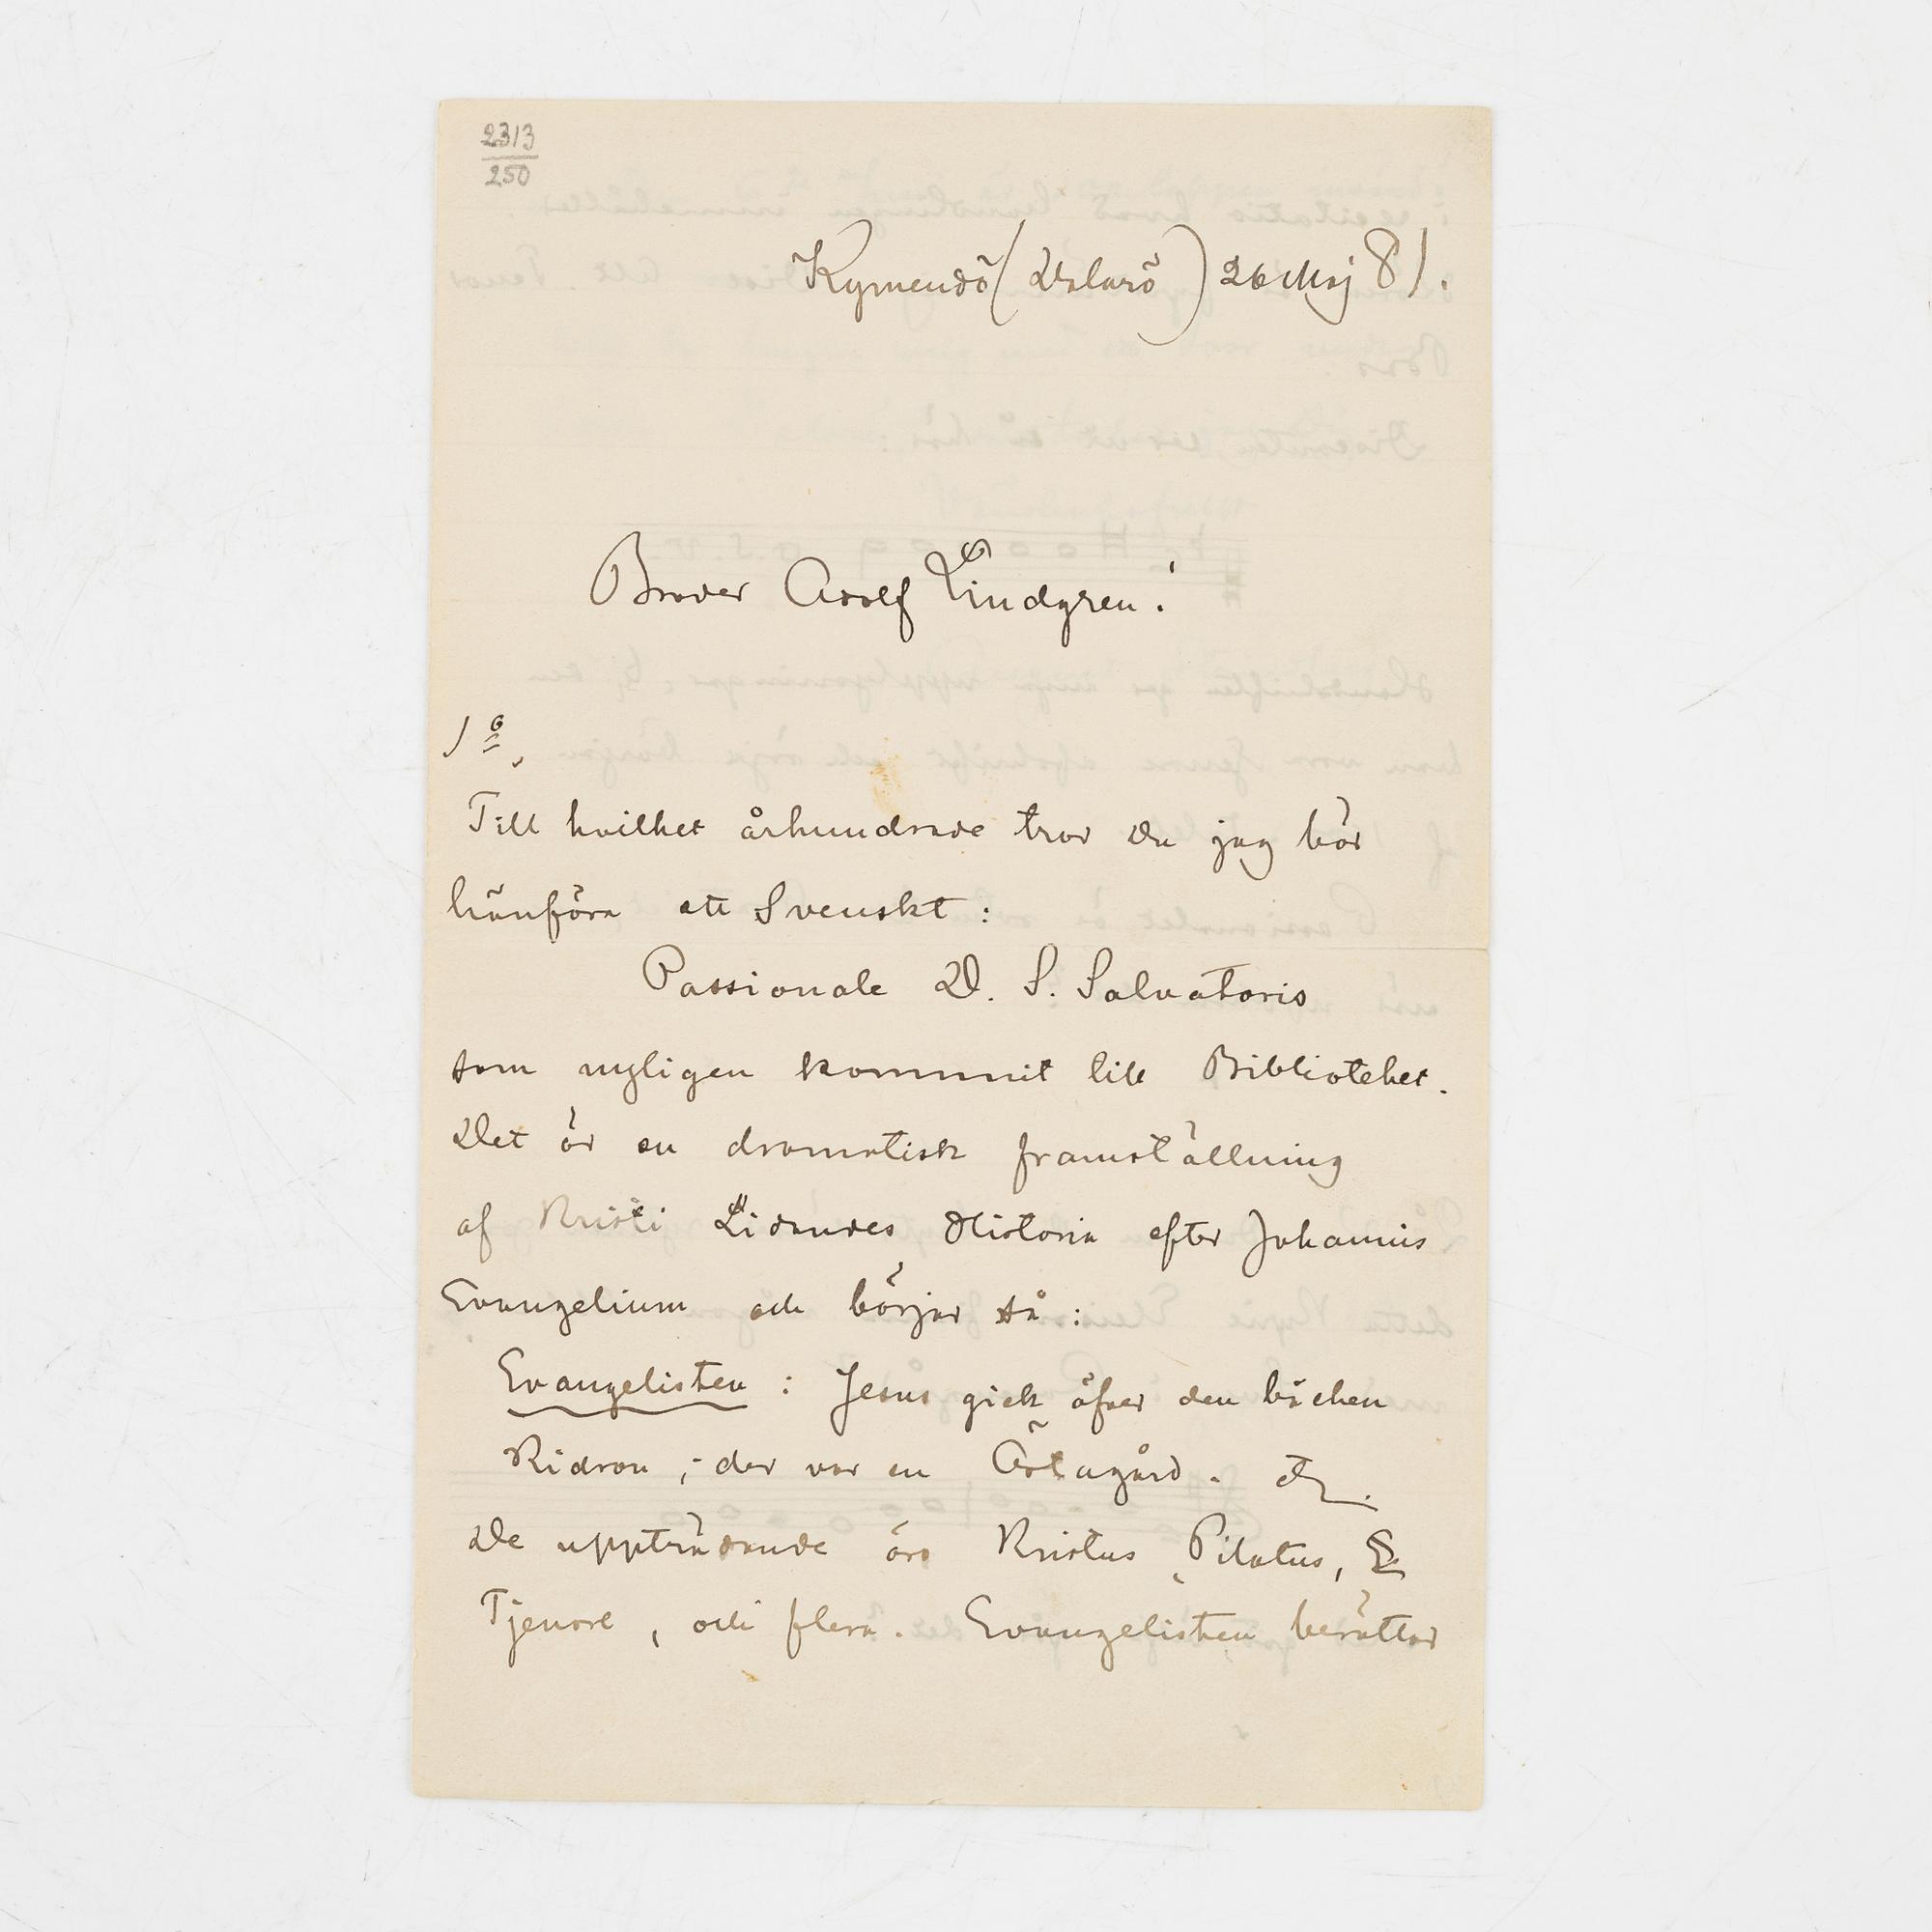 2313
250
Kymendö (Dalarö) 26 Maj 81.
Broder Adolf Lindgren!
1º,
Till hvilket århundrade tror Du jag bör
hänföra ett Svenskt:
Passionale D. S. Salvatoris
som nyligen kommit till Biblioteket.
Det är en dramatisk framställning
af Kristi Lidandes Historia efter Johannis
Evangelium och börjar så:
Evangelisten: Jesus gick öfver den bäcken
Kidron; der var en Örtagård. etc.
De uppträdande äro Kristus, Pilatus,
Tjenare, och flera. Evangelisten berättar